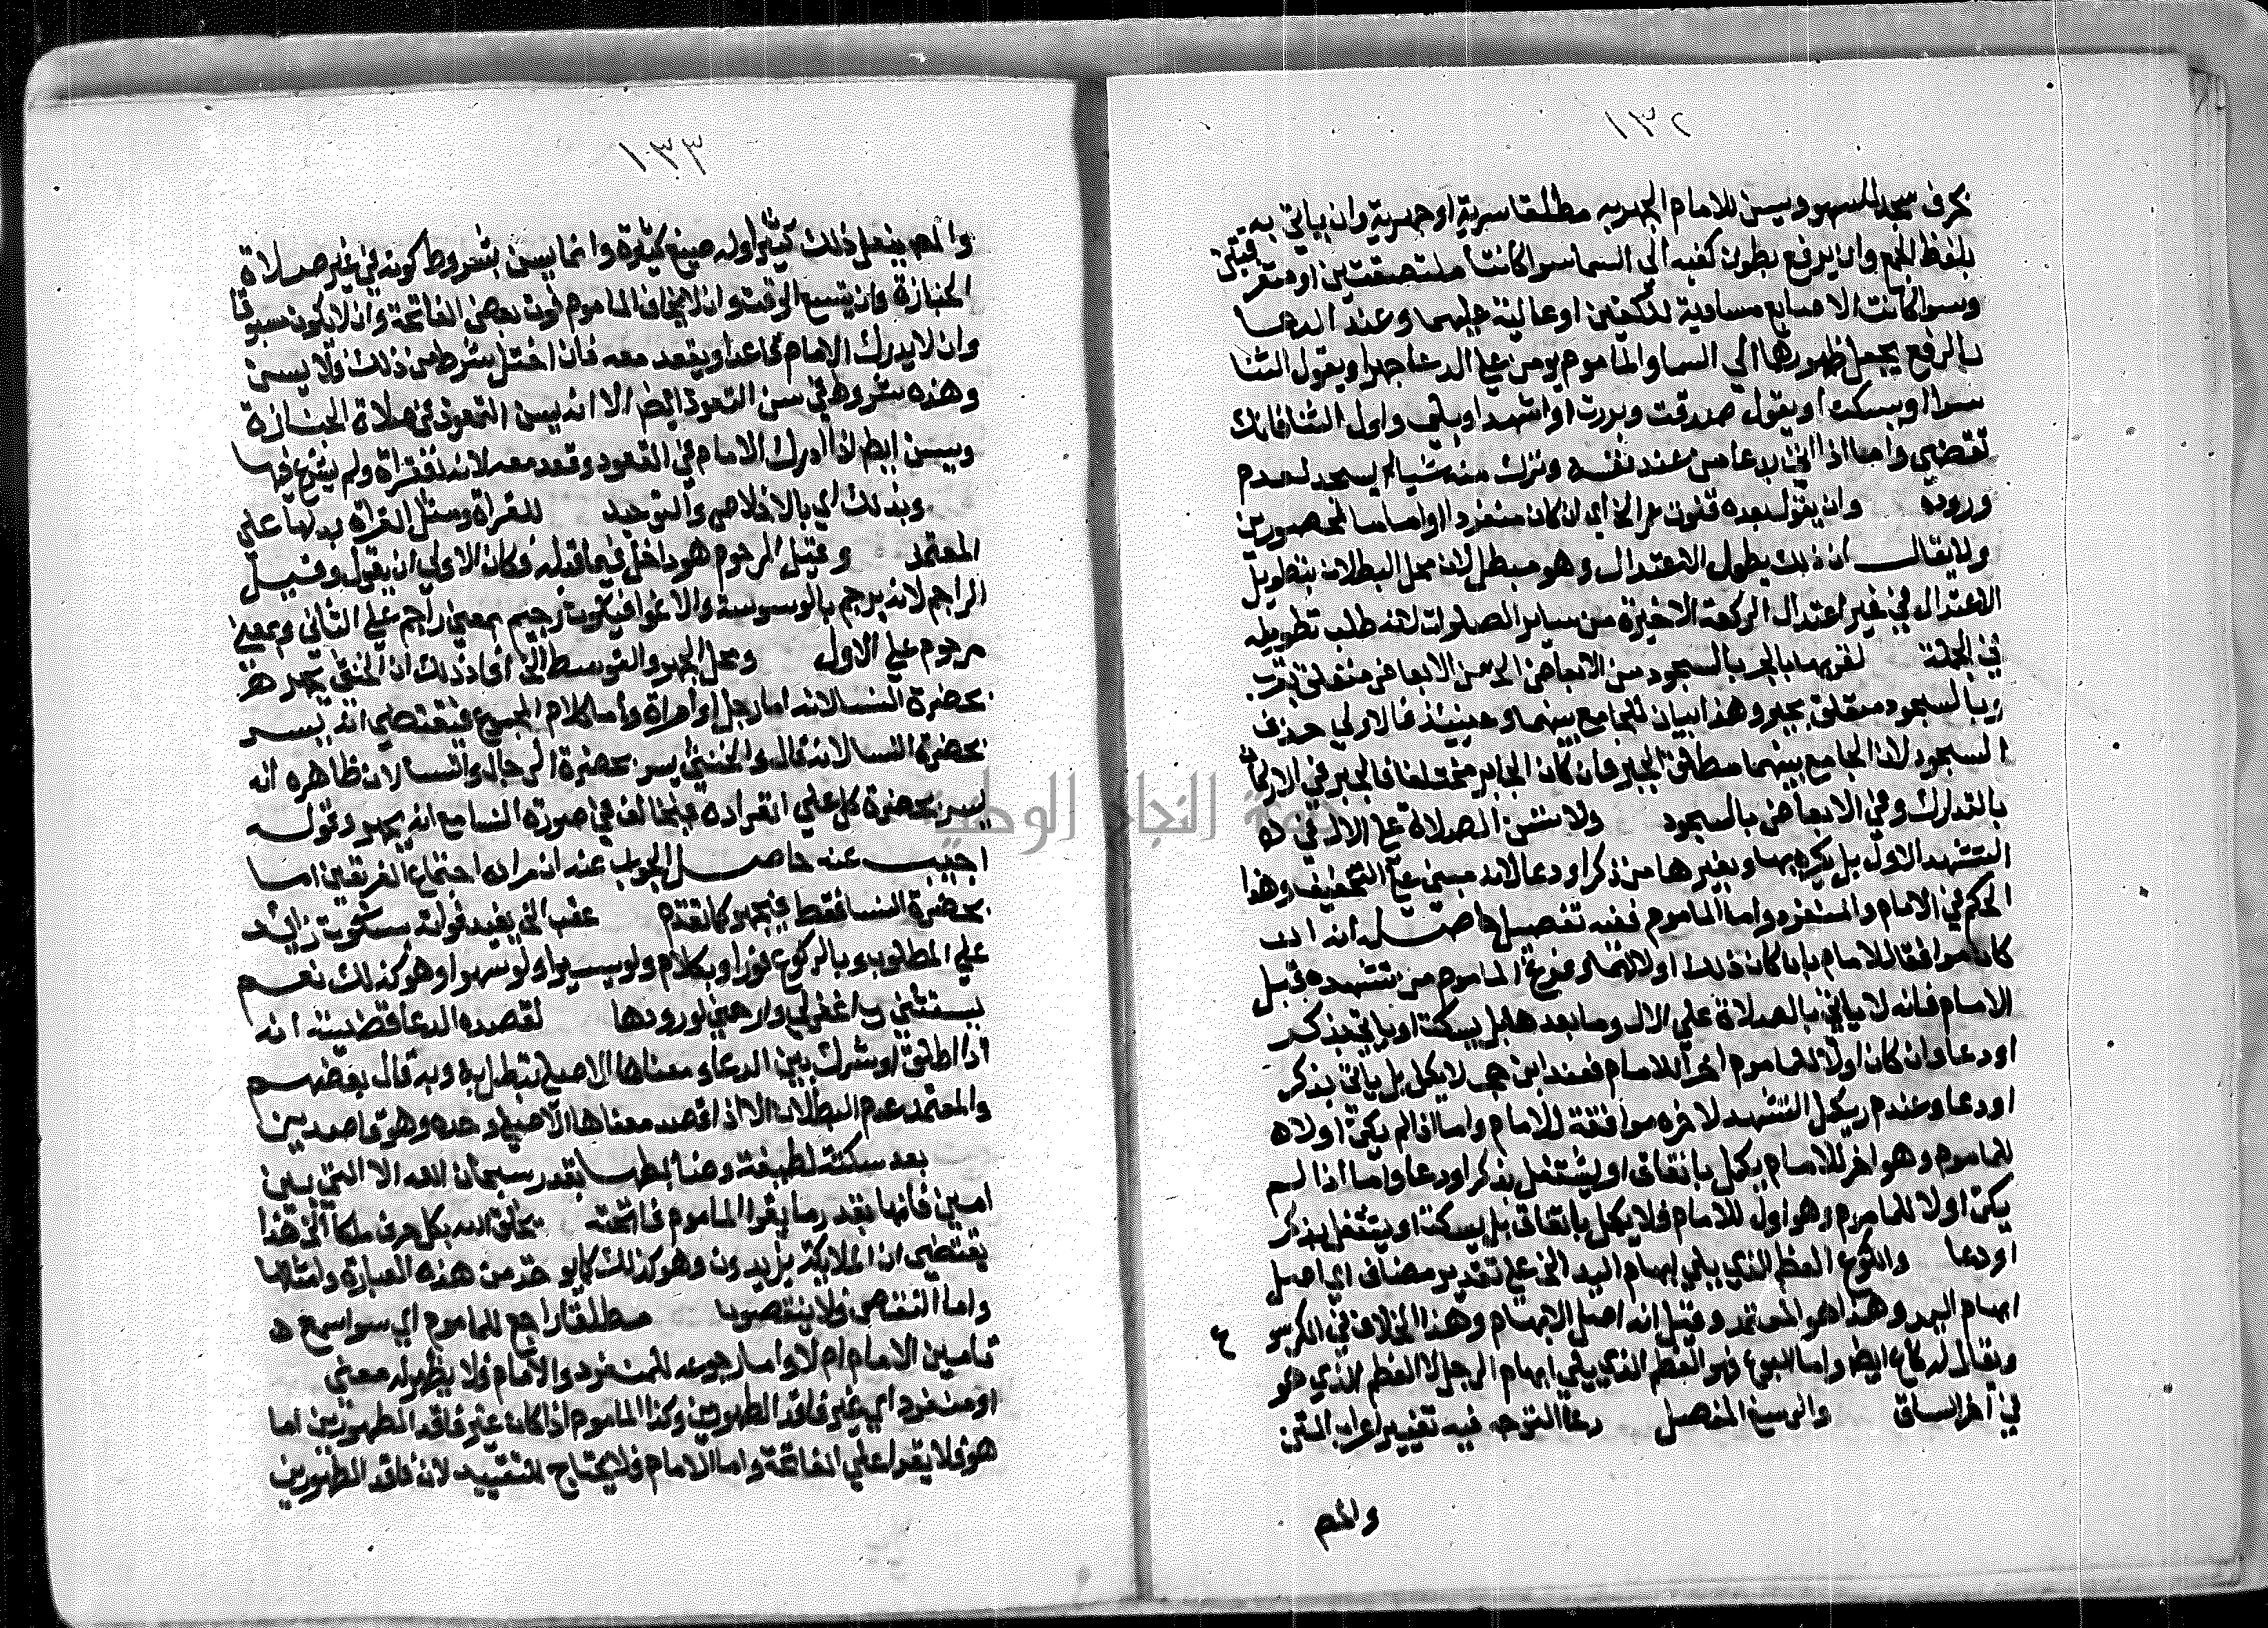 ١٣٢
بحرف سجد للسهو ويسن للامام الجهر به مطلقا سرية او جهرية وان ياتي به
بلفظ الجمع وان يرفع بطون كفيه الي السما سوا كانتا ملتصقتين او متفرقتين
وسوا كانت الاصابع مساوية للكفين او عالية عليهما وعند الدعا
بالرفع يجعل ظهورها الي السما والماموم يومن علي الدعا جهرا ويقول الثنا
سرا او يسكت او يقول صدقت وبررت او اشهد او بلي واول الثنا فانك
تقضي واما اذا اتي بدعا من عند نفسه وترك منه شيا لم يسجد لعدم
وروده وان يقول بعده قنوت عمر الخ اي ان كان منفردا او امام محصورين
ولا يقال ان ذلك يطول الاعتدال وهو مبطل لان محل البطلان بتطويل
الاعتدال في غير اعتدال الركعة الاخيرة من ساير الصلوات لانه طلب تطويله
في الجملة لقربها بالجبر بالسجود من الابعاض الخ من الابعاض متعلق بقرب
وبالسجود متعلق بجبر وهذا بيان للجامع بينهما وحينيذ فالاولي حذف
السجود لان الجامع بينهما مطلق الجبر وان كان الجابر مختلفا فالجبر في الاركان
بالتدارك وفي الابعاض بالسجود ولا تسن الصلاة علي الال في
التشهد الاول بل يكره بها وبغيرها من ذكر او دعا لانه مبني علي التخفيف وهذا
الحكم في الامام والمنفرد واما الماموم ففيه تفصيل حاصله انه ان
كان موافقا للامام بان كان ذلك اولا لهما وفرغ الماموم من تشهده قبل
الامام فانه لا ياتي بالصلاة علي الال وما بعدها بل يسكت او ياتي بذكر
او دعا وان كان اولا للماموم اخرا للامام فعند ابن حجر لا يكمل بل ياتي بذكر
او دعا وعند م ر يكمل التشهد لاخره موافقة للامام واما اذا لم يكن اولاه
للماموم وهو اخر للامام يكمل باتفاق او يشتغل بذكر او دعا واما اذا لم
يكن اولا للماموم وهو اول للامام فلا يكمل باتفاق بل يسكت او يشتغل بذكر
او دعا والكوع العظم الذي يلي ابهام اليد الخ علي تقدير مضاف اي اصل
ابهام اليد وهذا هو المعتمد وقيل انه اصل الابهام وهذا الخلاف في الكرسوع
ويقال له كاع ايضا واما البوع فهو العظم الذي يلي ابهام الرجل لا العظم الذي هو
في اخر الساق والرسغ المفصل دعا التوجه فيه تغيير اعراب المتن
والهم
١٣٣
والهم بفعل ذلك كثيرا وله صيغ كثيرة وانما يسن بشروط كونه في غير صلاة
الجنازة وان يتسع الوقت وان لا يخاف الماموم فوت بعض الفاتحة وان لا يكون مسبوقا
وان لا يدرك الامام قاعدا ويقعد معه فان اختل شرط من ذلك فلا يسن
وهذه شروط في سن التعوذ ايضا الا انه يسن التعوذ في صلاة الجنازة
ويسن ايضا اذا ادرك الامام في القعود وقعد معه لانه للقراة ولم يشرع فيها
وبذلك اي بالاخلاص والتوحيد للقراة ومثل القراة بدلها علي
المعتمد وقيل المرجوم هو داخل فيما قبله فكان الاولي ان يقول وقيل
الراجم لانه يرجم بالوسوسة والاغوا فيكون رجيم بمعني راجم علي الثاني وبمعني
مرجوم علي الاول ومحل الجهر والتوسط الخ افاد ذلك ان الخنثي يجهر
بحضرة النسا لانه اما رجل او امراة واما كلام المجموع فيقتضي انه يسر
بحضرة النسا لانه قال والخنثي يسر بحضرة الرجال والنسا لان ظاهره انه
يسر بحضرة كل علي انفراده فيخالف في صورة النسا مع انه يجهر وقوله
اجيب عنه حاصل الجواب عنه ان مراده اجتماع الفريقين اما
بحضرة النسا فقط فيجهر كما تقدم عقب الخ يفيد فواته بسكوت زايد
علي المطلوب وبالركوع فورا وبكلام ولو يسيرا ولو سهوا وهو كذلك نعم
يستثني رب اغفر لي وارحمني لورودها لقصده الدعا قضيته انه
اذا اطلق او شرك بين الدعا ومعناها الاصلي تبطل به وبه قال بعضهم
والمعتمد عدم البطلان الا اذا قصد معناها الاصلي وحده وهو قاصدين
بعد سكتة لطيفة وضابطها بقدر سبحان الله الا التي بين
امين فانها بقدر ما يقرا الماموم فاتحته يخلق الله بكل حرف ملكا الخ هذا
يقتضي ان الملايكة يزيدون وهو كذلك كما يوخذ من هذه العبارة وامثالها
واما النقص فلا ينقصوا مطلقا راجع للماموم اي سوا سمع
تامين الامام ام لا واما رجوعه للمنفرد والامام فلا يظهر له معني
او منفرد اي غير فاقد الطهورين وكذا الماموم اذا كان غير فاقد الطهورين اما
هو فلا يقرا علي الفاتحة واما الامام فلا يحتاج للتقييد لان فاقد الطهورين